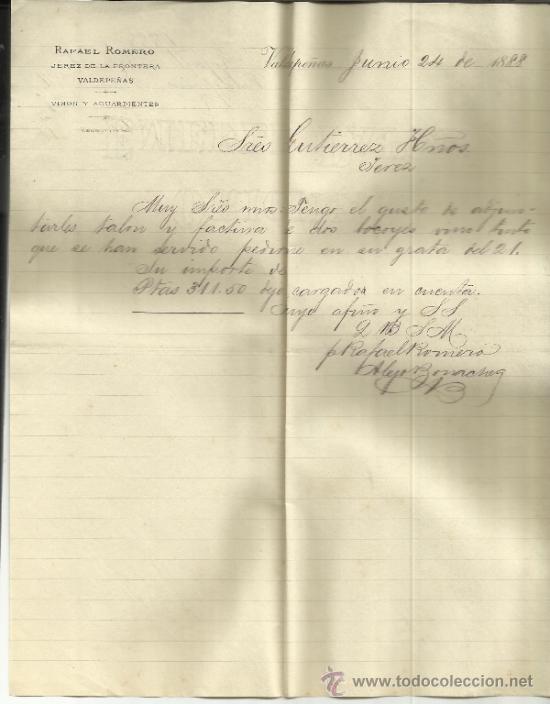 RAFAEL ROMERO
JEREZ DE LA FRONTERA
VALDEPEÑAS
VINOS Y AGUARDIENTES
Valdepeñas Junio 24 de 1888
Sres Gutierrez Hños
Jerez
Muy Sres mios: Tengo el gusto de adjun-
tarles talon y factura de dos bocoyes vino tinto
que se han servido pedirme en su grata del 21.
Su importe de
Ptas 311.50 dejo cargados en cuenta.
Suyo afmo y SS
Q B S M
p Rafael Romero
Alejo
todocoleccion
www.todocoleccion.net